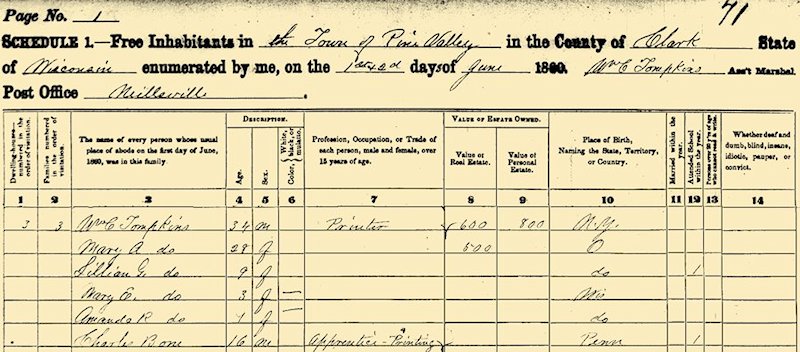 Page No. 1
71
SCHEDULE 1.—Free Inhabitants in the Town of Pine Valley in the County of Clark State
of Wisconsin enumerated by me, on the 1st & 2d days of June 1860. Wm C Tompkins Ass't Marshal.
Post Office Neillsville.
Dwelling-houses—numbered in the order of visitation.
Families numbered in the order of visitation.
The name of every person whose usual place of abode on the first day of June, 1860, was in this family.
DESCRIPTION.
Age.
Sex.
Color, White, black, or mulatto.
Profession, Occupation, or Trade of each person, male and female, over 15 years of age.
VALUE OF ESTATE OWNED.
Value of Real Estate.
Value of Personal Estate.
Place of Birth, Naming the State, Territory, or Country.
Married within the year.
Attended School within the year.
Persons over 20 y'rs of age who cannot read & write.
Whether deaf and dumb, blind, insane, idiotic, pauper, or convict.
1 2 3 4 5 6 7 8 9 10 11 12 13 14
3 3 Wm C Tompkins 34 m Printer 600 800 N.Y.
Mary A do 28 f 500 O
Lillian G. do 9 f do 1
Mary E. do 3 f — Wis
Amanda R do 1 f — do
Charles Bone 16 m Apprentice - Printing Penn 1